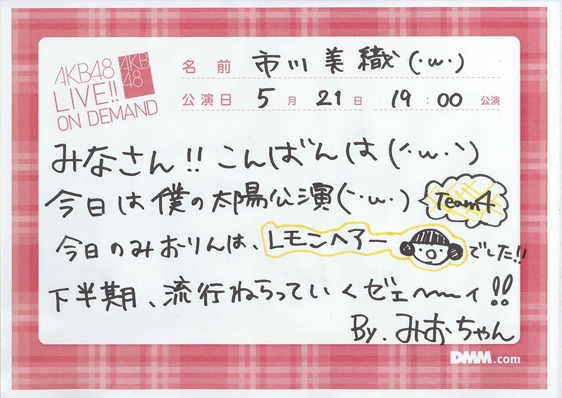 AKB48
LIVE!!
ON DEMAND
AKB
48
名前 市川美織(・ω・)
公演日 5月21日 19:00 公演
みなさん!!こんばんは(´・ω・`)
今日は僕の太陽公演(´・ω・) Team4
今日のみおりんは、レモンヘアーでした!!
下半期、流行ねらっていくゼェ〜〜ィ!!
By.みおちゃん
DMM.com